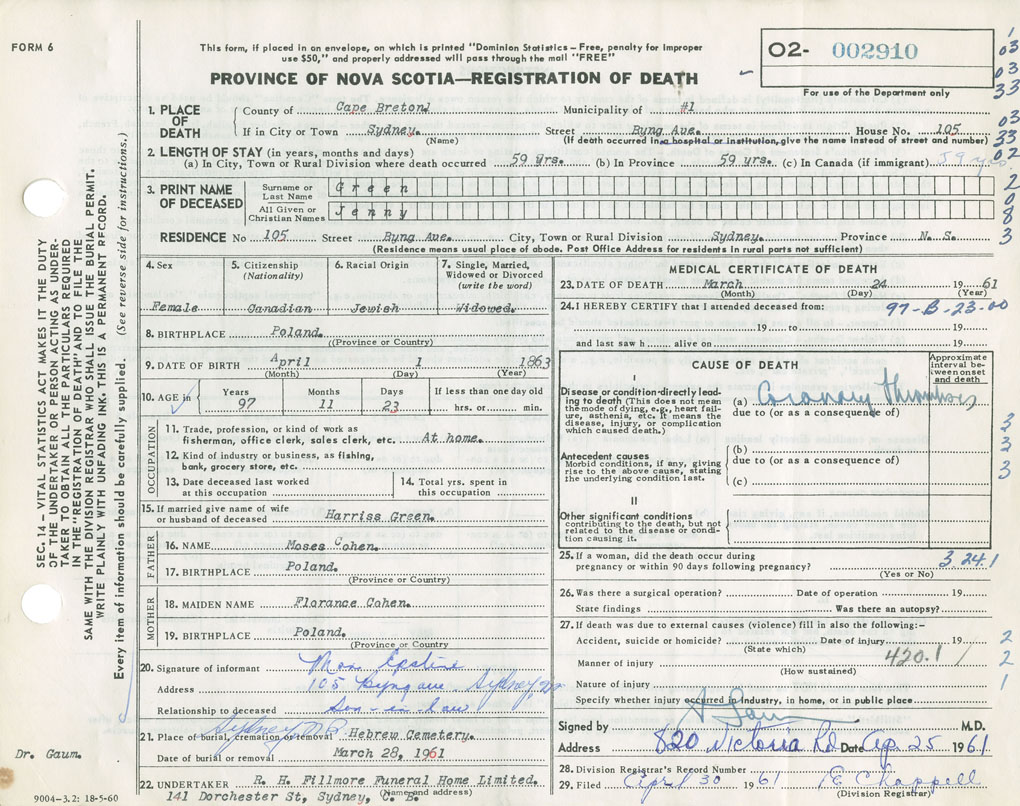 FORM 6
This form, if placed in an envelope, on which is printed "Dominion Statistics – Free, penalty for improper
use $50," and properly addressed will pass through the mail "FREE"
PROVINCE OF NOVA SCOTIA—REGISTRATION OF DEATH
O2- 002910
For use of the Department only
1. PLACE OF DEATH
County of Cape Breton Municipality of #1
If in City or Town Sydney. Street Byng Ave. House No. 105
(Name) (If death occurred in a hospital or institution, give the name instead of street and number)
2. LENGTH OF STAY (in years, months and days)
(a) In City, Town or Rural Division where death occurred 59 yrs. (b) In Province 59 yrs. (c) In Canada (if immigrant) 59 yrs.
3. PRINT NAME OF DECEASED
Surname or Last Name Green
All Given or Christian Names Jenny
RESIDENCE No 105 Street Byng Ave. City, Town or Rural Division Sydney. Province N. S.
(Residence means usual place of abode. Post Office Address for residents in rural parts not sufficient)
4. Sex
Female
5. Citizenship (Nationality)
Canadian
6. Racial Origin
Jewish
7. Single, Married, Widowed or Divorced (write the word)
Widowed.
8. BIRTHPLACE Poland.
(Province or Country)
9. DATE OF BIRTH April 1 1863
(Month) (Day) (Year)
10. AGE in Years 97 Months 11 Days 23 If less than one day old hrs. or min.
OCCUPATION
11. Trade, profession, or kind of work as
fisherman, office clerk, sales clerk, etc. At home.
12. Kind of industry or business, as fishing,
bank, grocery store, etc.
13. Date deceased last worked at this occupation
14. Total yrs. spent in this occupation
15. If married give name of wife
or husband of deceased Harriss Green.
FATHER
16. NAME Moses Cohen.
17. BIRTHPLACE Poland.
(Province or Country)
MOTHER
18. MAIDEN NAME Florance Cohen.
19. BIRTHPLACE Poland.
(Province or Country)
20. Signature of informant Epstine
Address 105 Byng ave Sydney
Relationship to deceased Son-in-law
21. Place of burial, cremation or removal Hebrew Cemetery.
Date of burial or removal March 28, 1961
22. UNDERTAKER R. H. Fillmore Funeral Home Limited.
(Name and address)
141 Dorchester St, Sydney, C. B.
MEDICAL CERTIFICATE OF DEATH
23. DATE OF DEATH March 24 1961
(Month) (Day) (Year)
24. I HEREBY CERTIFY that I attended deceased from:
97-B-23-00
19 to 19
and last saw h alive on 19
CAUSE OF DEATH
Approximate interval between onset and death
I
Disease or condition directly leading to death (This does not mean the mode of dying, e.g., heart failure, asthenia, etc. It means the disease, injury, or complication which caused death.)
(a) Coronary Thrombosis
due to (or as a consequence of)
Antecedent causes
Morbid conditions, if any, giving rise to the above cause, stating the underlying condition last.
(b)
due to (or as a consequence of)
(c)
II
Other significant conditions
contributing to the death, but not related to the disease or condition causing it.
25. If a woman, did the death occur during
pregnancy or within 90 days following pregnancy?
(Yes or No)
3.24.1
26. Was there a surgical operation? Date of operation 19
State findings Was there an autopsy?
27. If death was due to external causes (violence) fill in also the following:–
Accident, suicide or homicide? Date of injury 19
(State which)
420.1
Manner of injury
(How sustained)
Nature of injury
Specify whether injury occurred in industry, in home, or in public place
Signed by M.D.
Address 820 Victoria Rd Date Ap 25 1961
28. Division Registrar's Record Number
29. Filed Apr 30 1961 Chappell
(Division Registrar)
SEC. 14 – VITAL STATISTICS ACT MAKES IT THE DUTY
OF THE UNDERTAKER OR PERSON ACTING AS UNDERTAKER TO OBTAIN ALL THE PARTICULARS REQUIRED
IN THE "REGISTRATION OF DEATH" AND TO FILE THE
SAME WITH THE DIVISION REGISTRAR WHO SHALL ISSUE THE BURIAL PERMIT.
WRITE PLAINLY WITH UNFADING INK. THIS IS A PERMANENT RECORD.
Every item of information should be carefully supplied. (See reverse side for instructions.)
Dr. Gaum.
9004–3.2: 18-5-60